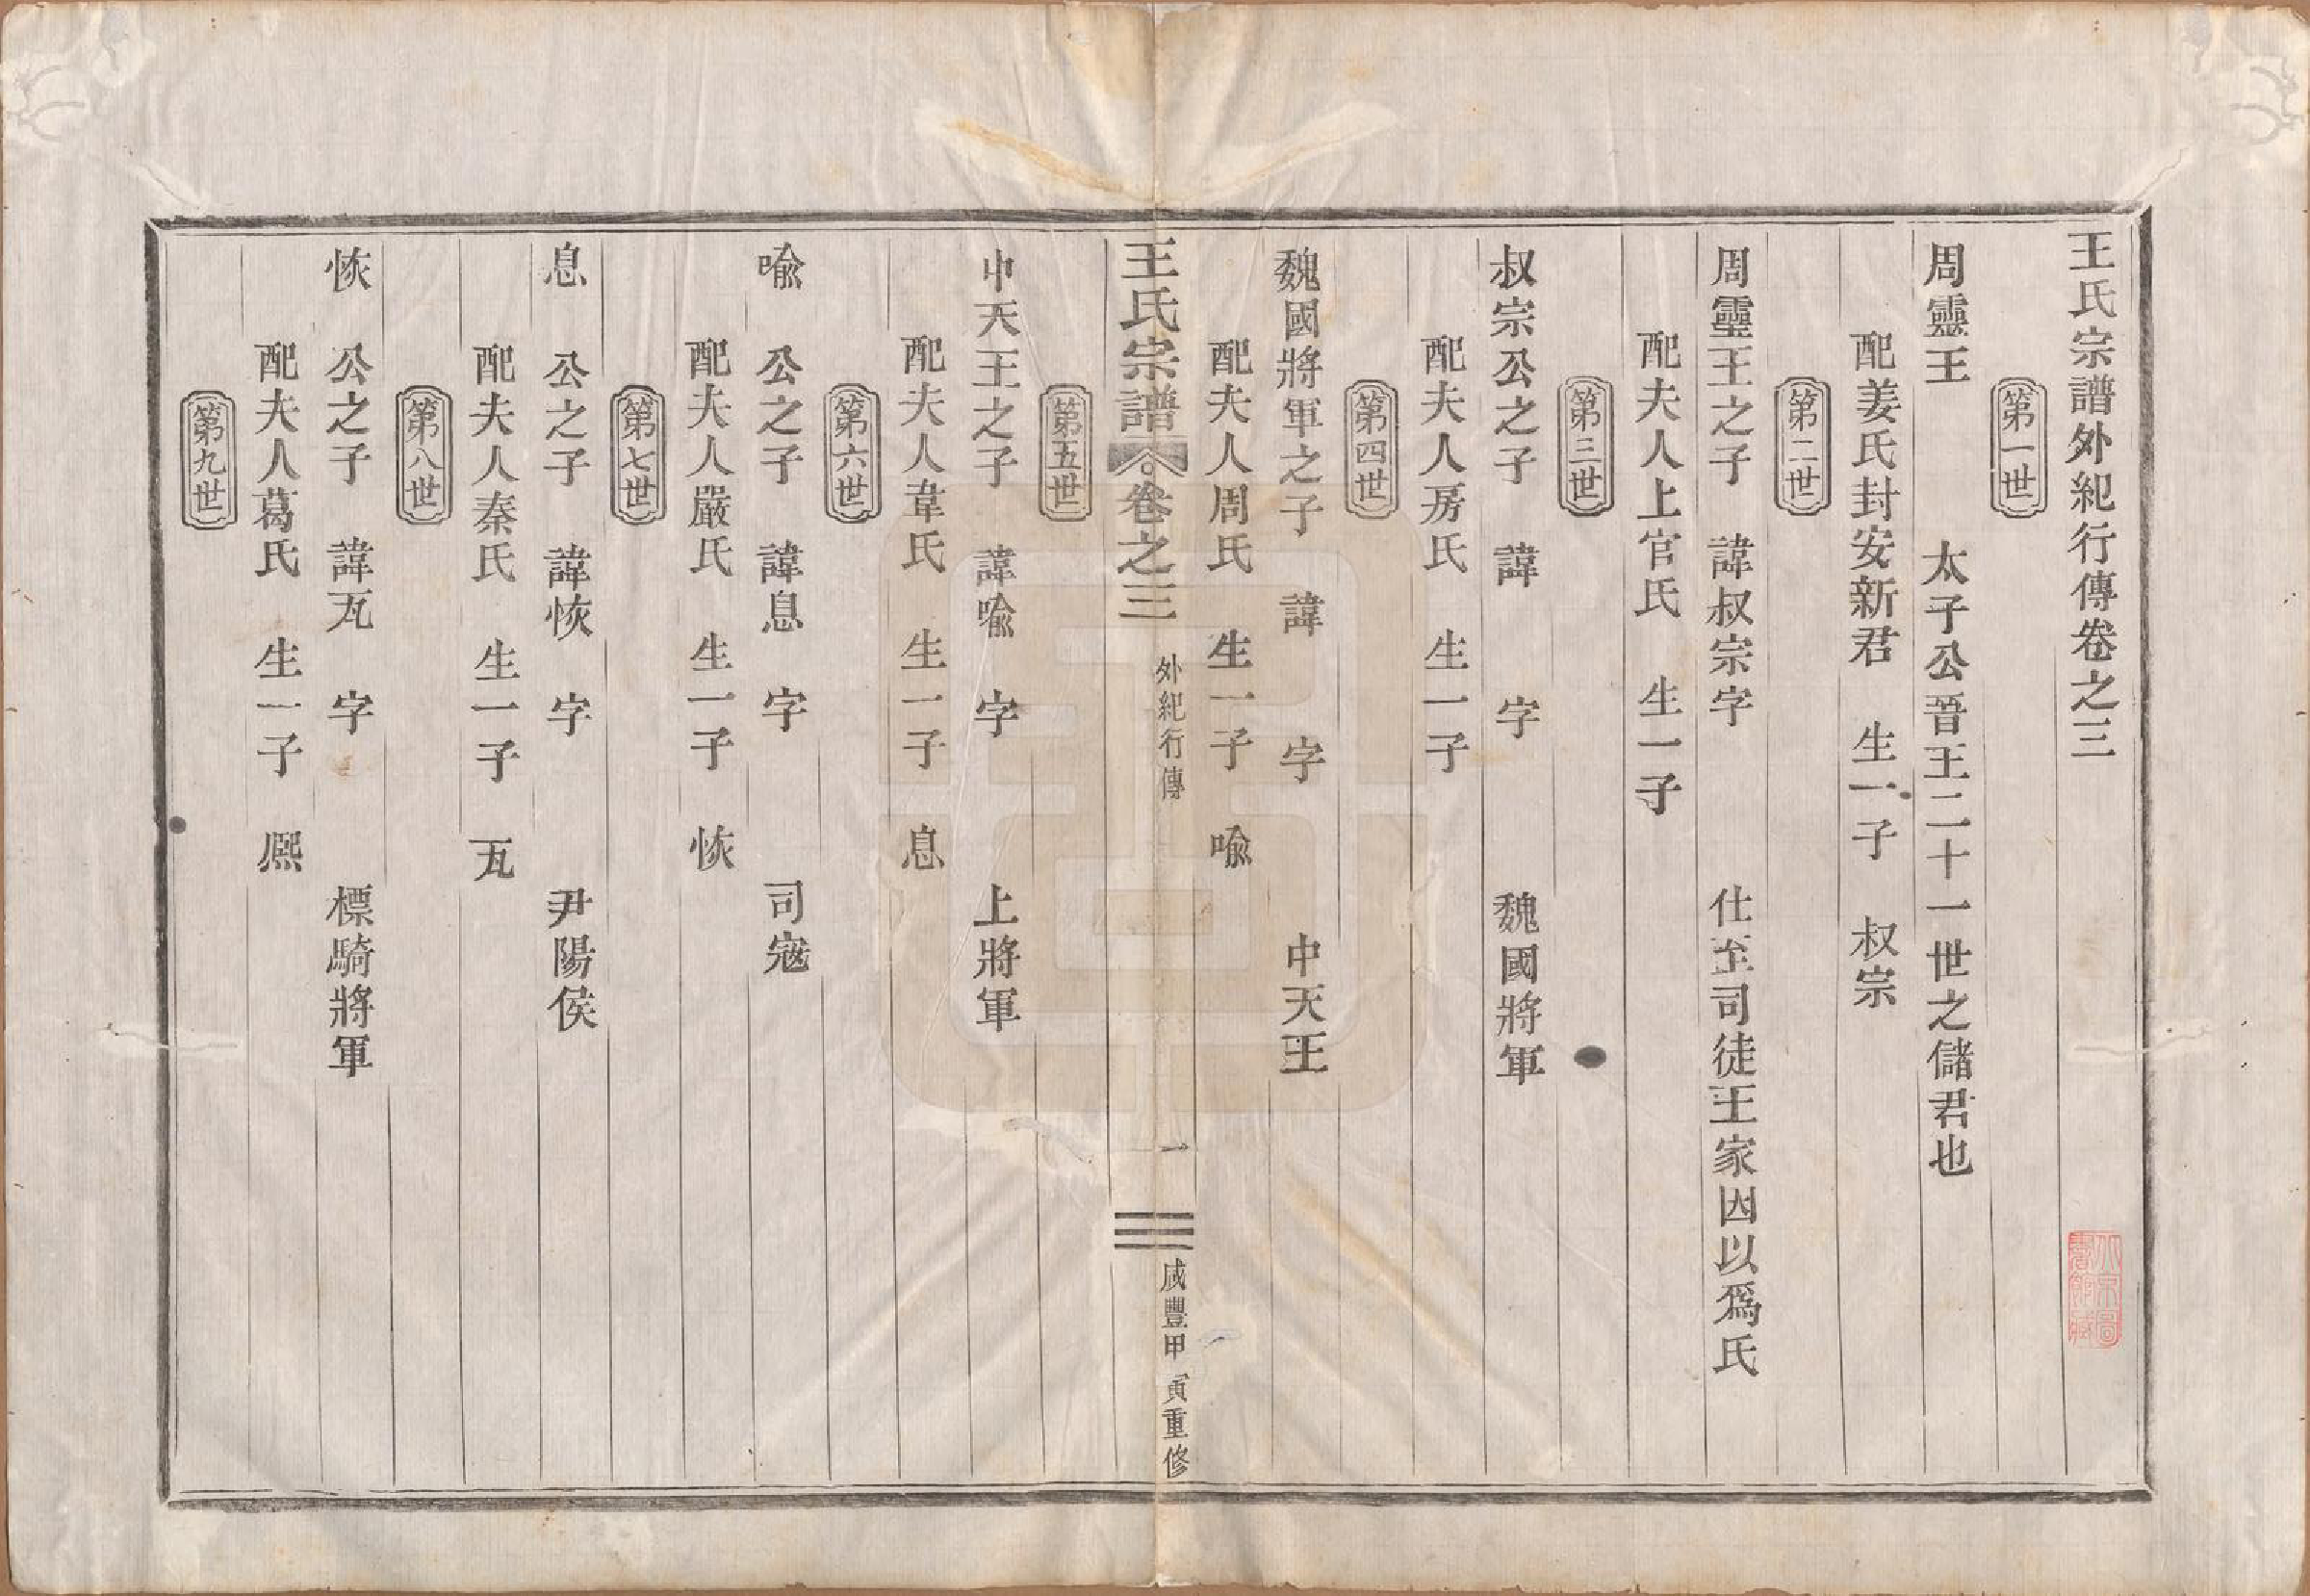 王氏宗譜外紀行傳卷之三
第一世
周靈王　太子公晉王二十一世之儲君也
配姜氏封安新君　生一子　叔宗
第二世
周靈王之子　諱叔宗字　仕至司徒王家因以爲氏
配夫人上官氏　生一子
第三世
叔宗公之子　諱　字　魏國將軍
配夫人房氏　生一子
第四世
魏國將軍之子　諱　字　中天王
配夫人周氏　生一子　喩
王氏宗譜　卷之三　外紀行傳　一　咸豐甲寅重修
第五世
中天王之子　諱喩　字　上將軍
配夫人韋氏　生一子　息
第六世
喩　公之子　諱息　字　司寇
配夫人嚴氏　生一子　恢
第七世
息　公之子　諱恢　字　尹陽侯
配夫人秦氏　生一子　瓦
第八世
恢　公之子　諱瓦　字　標騎將軍
配夫人葛氏　生一子　熈
第九世